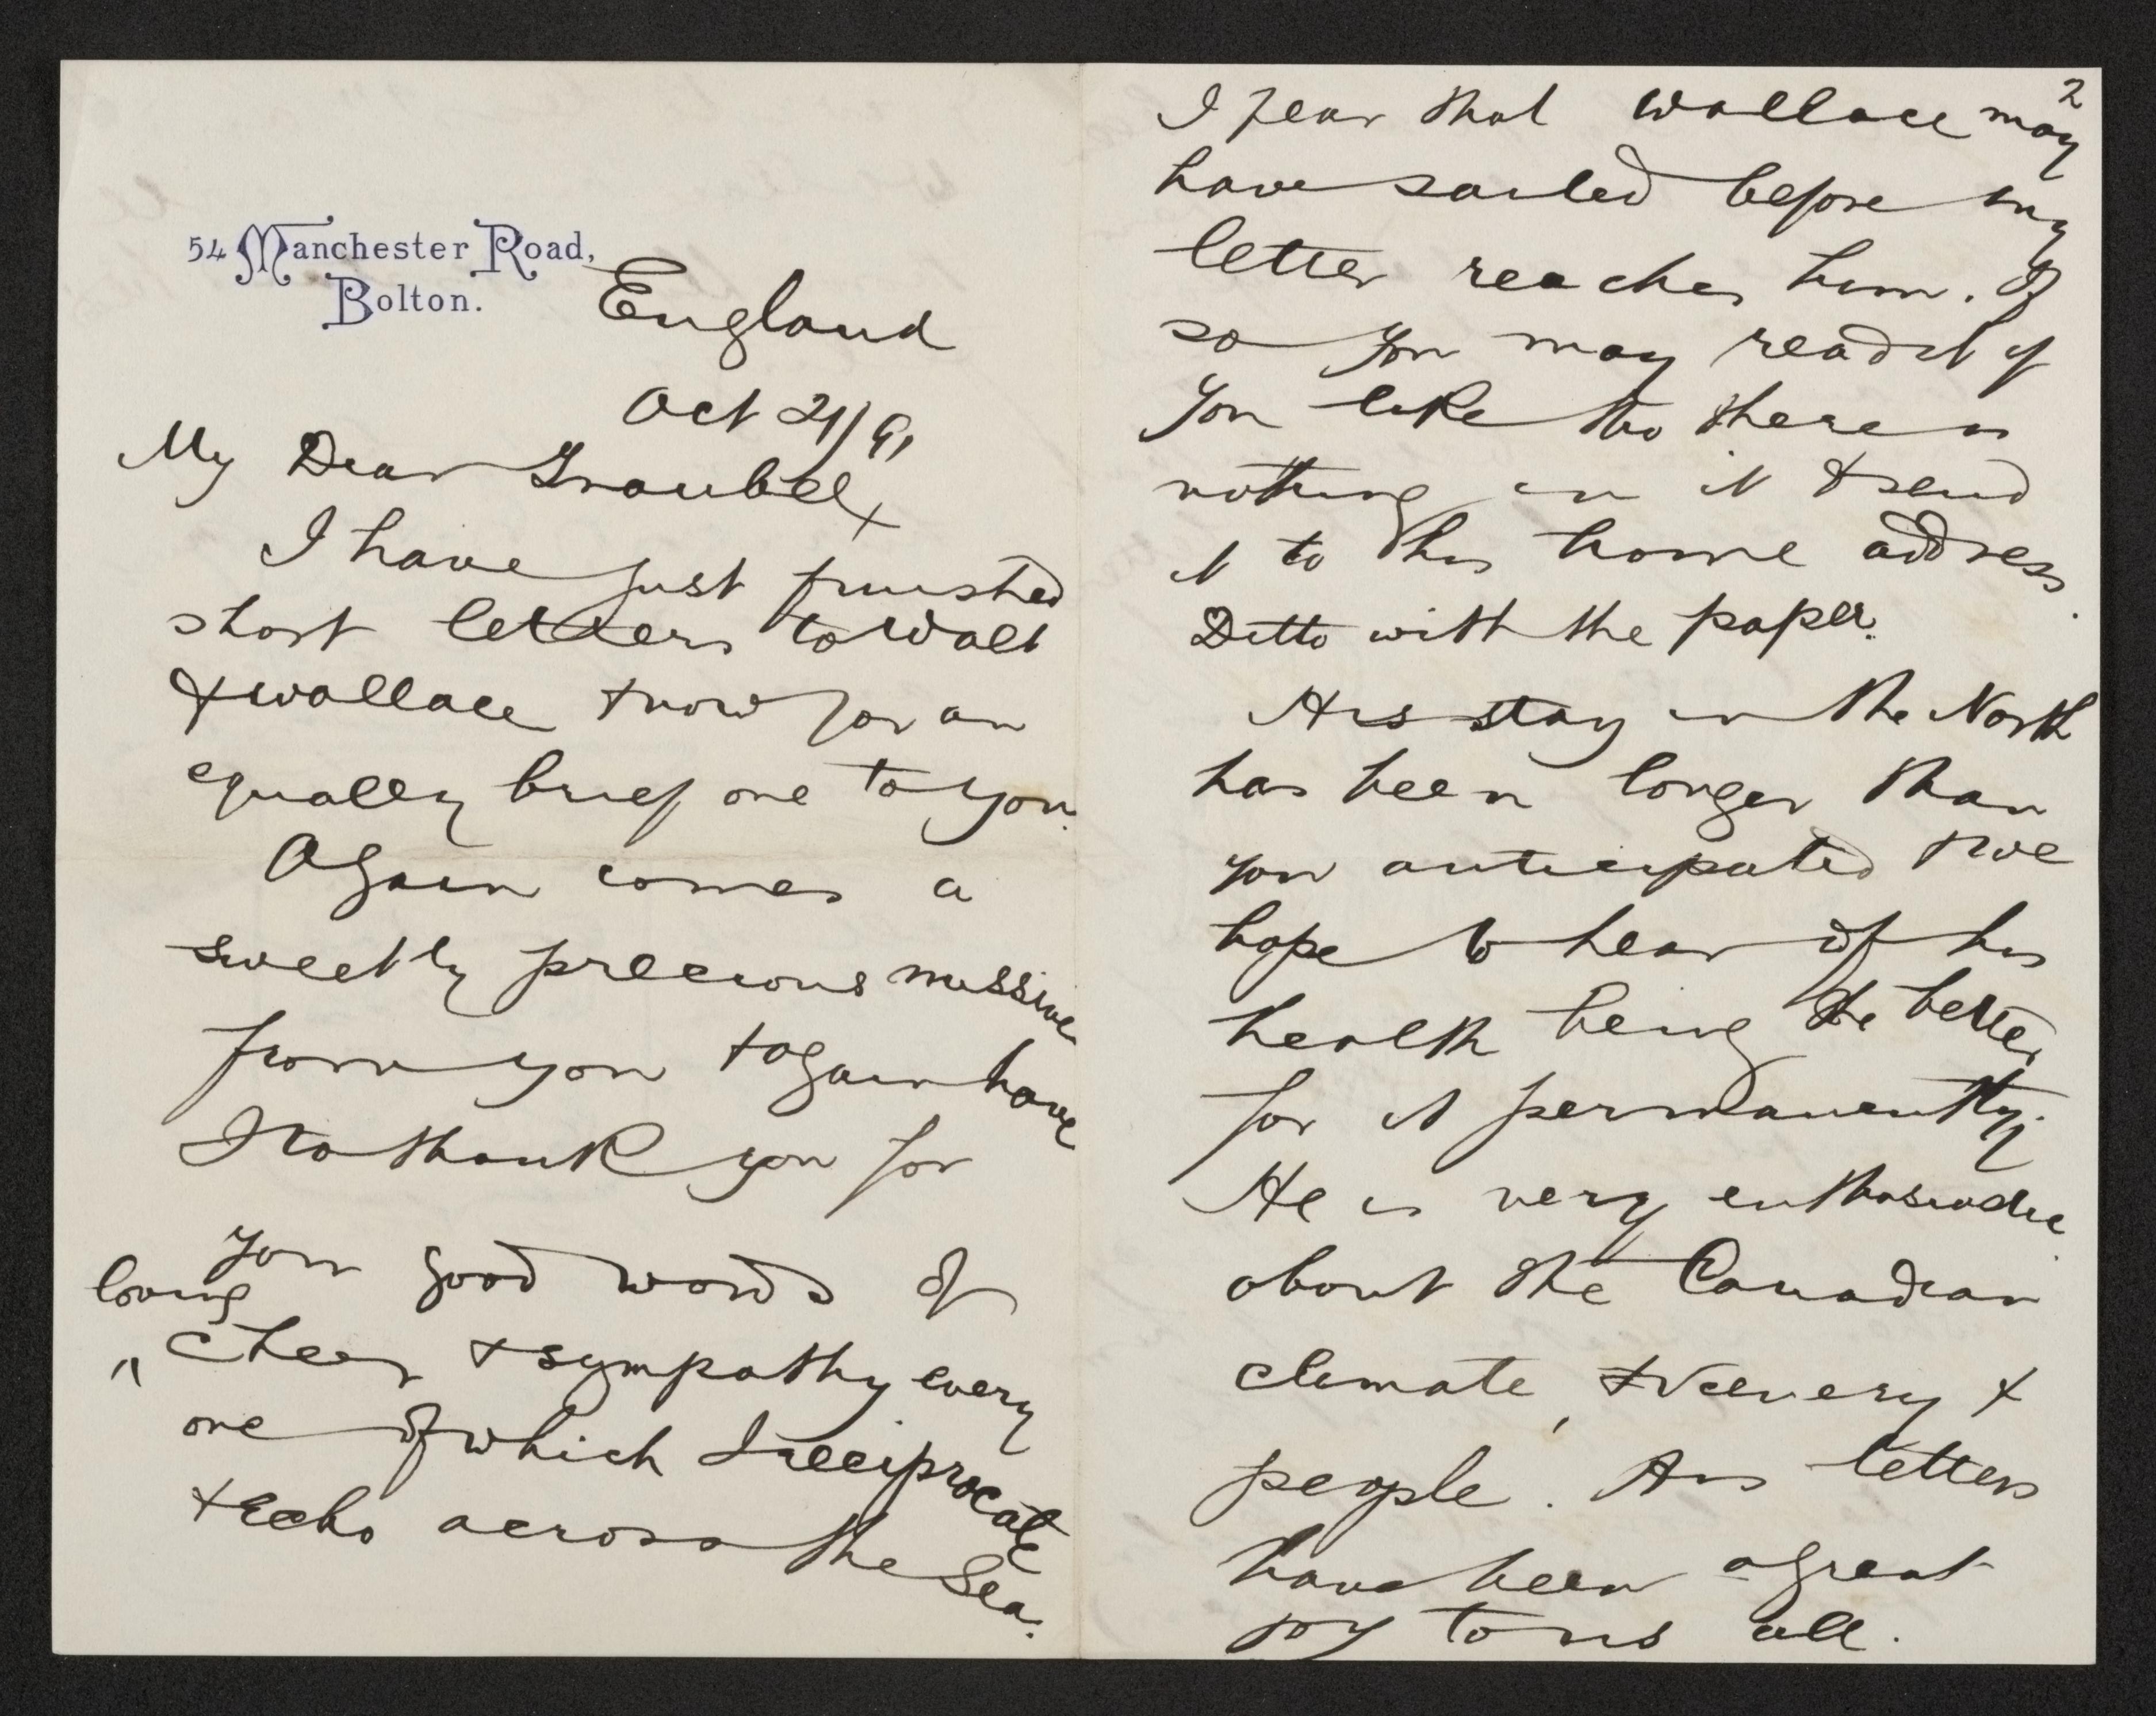 54 Manchester Road,
Bolton.
England
Oct 21/91
My Dear Traubel,
I have just finished
short letters to Walt
& Wallace & now for an
equally brief one to you.
Again comes a
sweetly precious missive
from you & again have
I to thank you for
your good words of
loving
" cheer & sympathy every
one of which I reciprocate
& echo across the Sea.
2
I fear that Wallace may
have sailed before my
letter reaches him. If
so you may read it if
you like tho there is
nothing in it & send
it to his home address.
Ditto with the paper.
His stay in the North
has been longer than
you anticipated & we
hope to hear of his
health being the better
for it permanently.
He is very enthusiastic
about the Canadian
climate, & scenery &
people. His letters
have been a great
joy to us all.